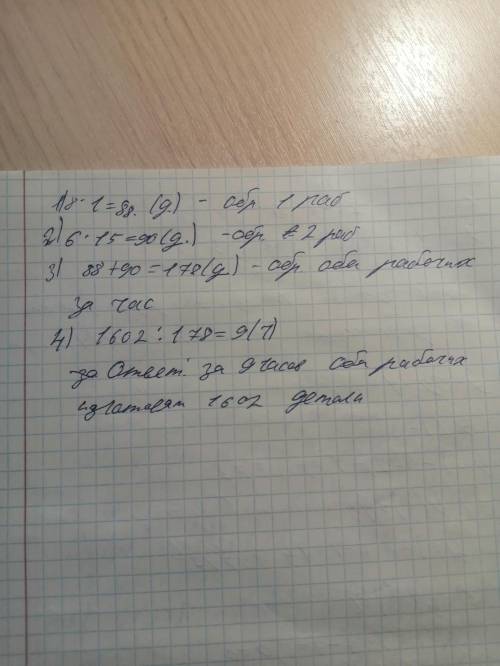 1) 8 · 1 = 88. (д.) - обр 1 раб
2) 6 · 15 = 90 (д.) - обр. 2 раб
3) 88 + 90 = 178 (д) - обр оба рабочих
за час
4) 1602 : 178 = 9 (ч)
за Ответ: за 9 часов оба рабочих
изготовят 1602 детали